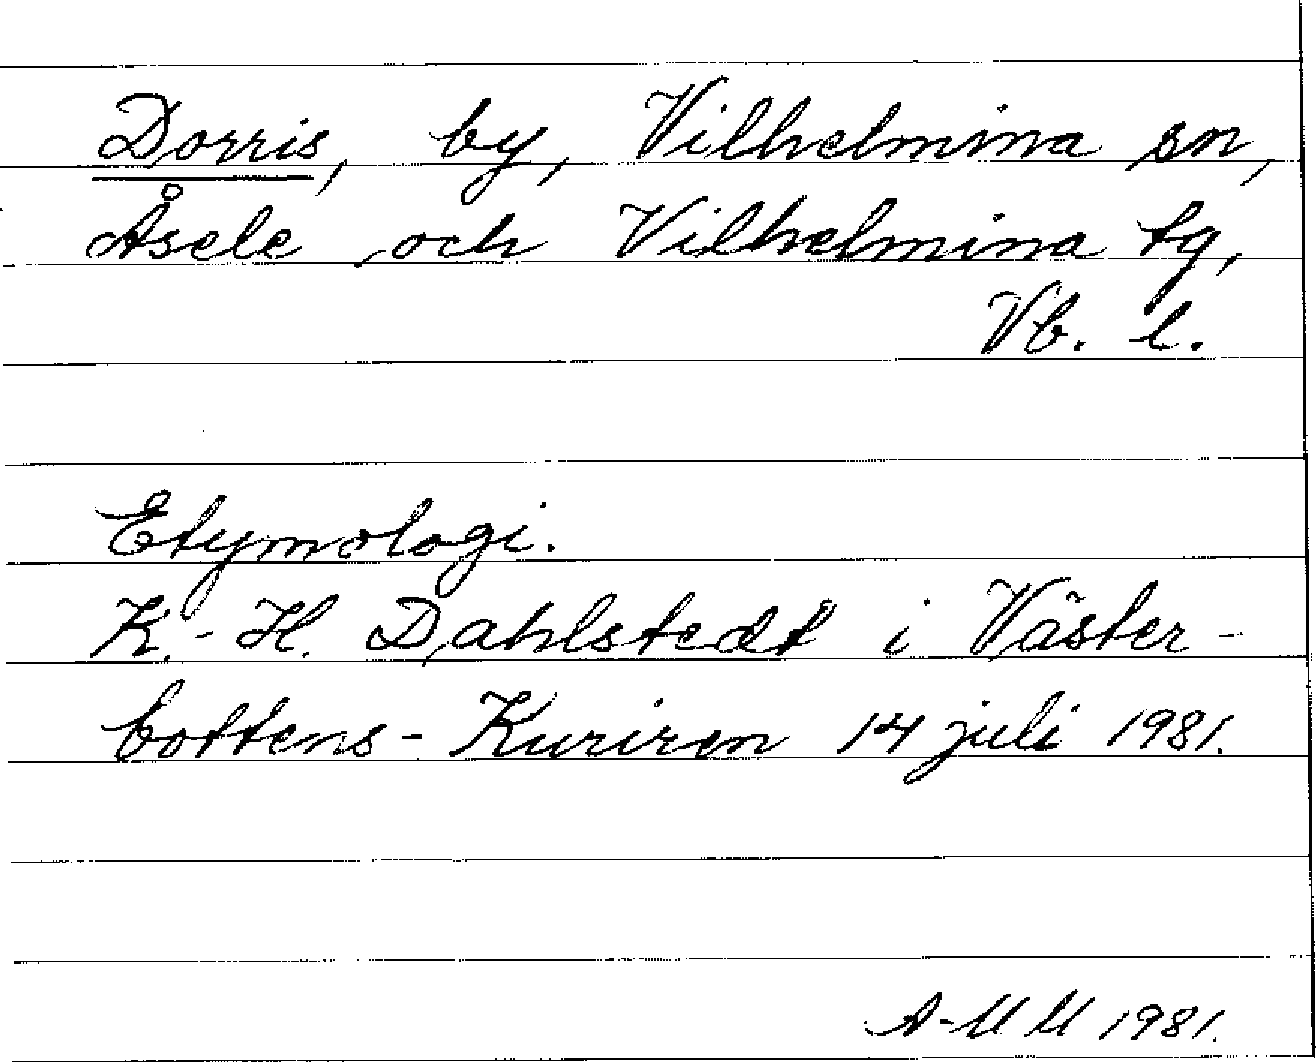 Dorris, by, Vilhelmina sn,
Åsele och Vilhelmina tg,
Vb. l.
Etymologi.
K.-H. Dahlstedt i Väster-
bottens-Kuriren 14 juli 1981.
A-MM 1981.